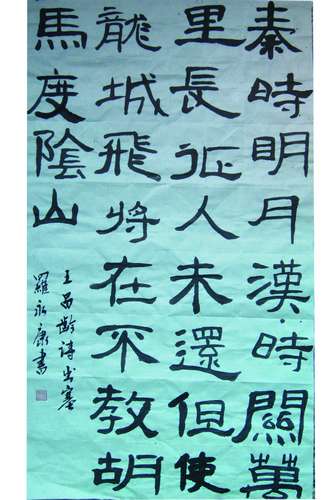 秦時明月漢時關萬
里長征人未還但使
龍城飛將在不教胡
馬度陰山
王昌齡詩出塞
羅永康書